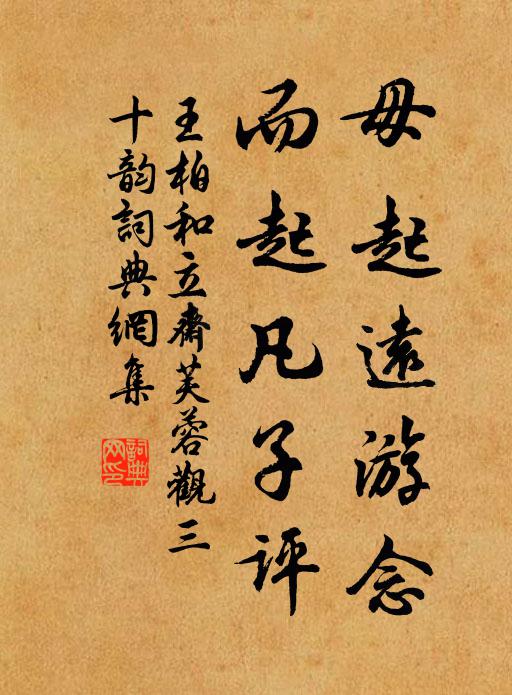 毋起遠游念
而起凡子評
王柏和立齋芙蓉觀三
十韵詞典網集
詞典网印